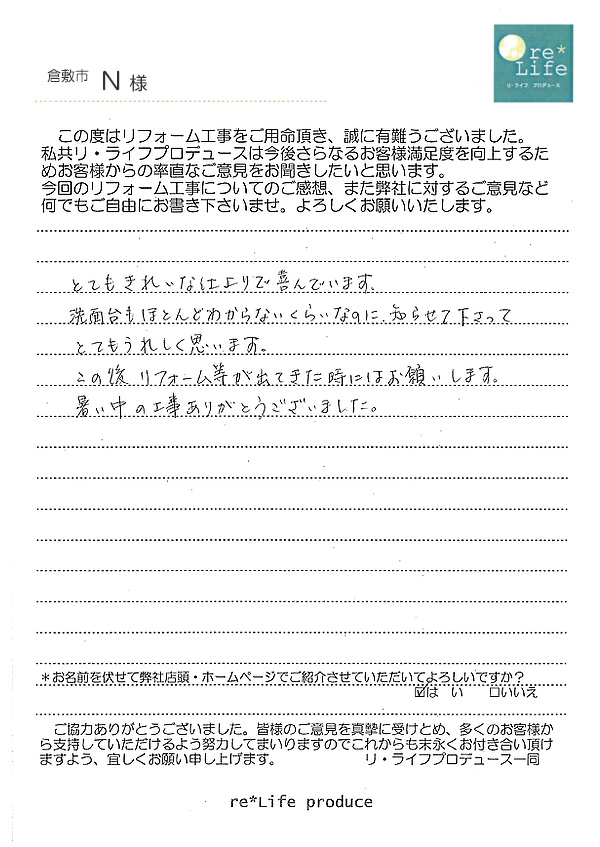 re*
Life
リ・ライフ プロデュース
倉敷市 N 様
この度はリフォーム工事をご用命頂き、誠に有難うございました。
私共リ・ライフプロデュースは今後さらなるお客様満足度を向上するた
めお客様からの率直なご意見をお聞きしたいと思います。
今回のリフォーム工事についてのご感想、また弊社に対するご意見など
何でもご自由にお書き下さいませ。よろしくお願いいたします。
とてもきれいな仕上りで喜んでいます。
洗面台もほとんどわからないくらいなのに、知らせて下さって
とてもうれしく思います。
この後リフォーム等が出てきた時にはお願いします。
暑い中の工事ありがとうございました。
*お名前を伏せて弊社店頭・ホームページでご紹介させていただいてよろしいですか？
☑は い □いいえ
ご協力ありがとうございました。皆様のご意見を真摯に受けとめ、多くのお客様か
ら支持していただけるよう努力してまいりますのでこれからも末永くお付き合い頂け
ますよう、宜しくお願い申し上げます。 リ・ライフプロデュース一同
re*Life produce